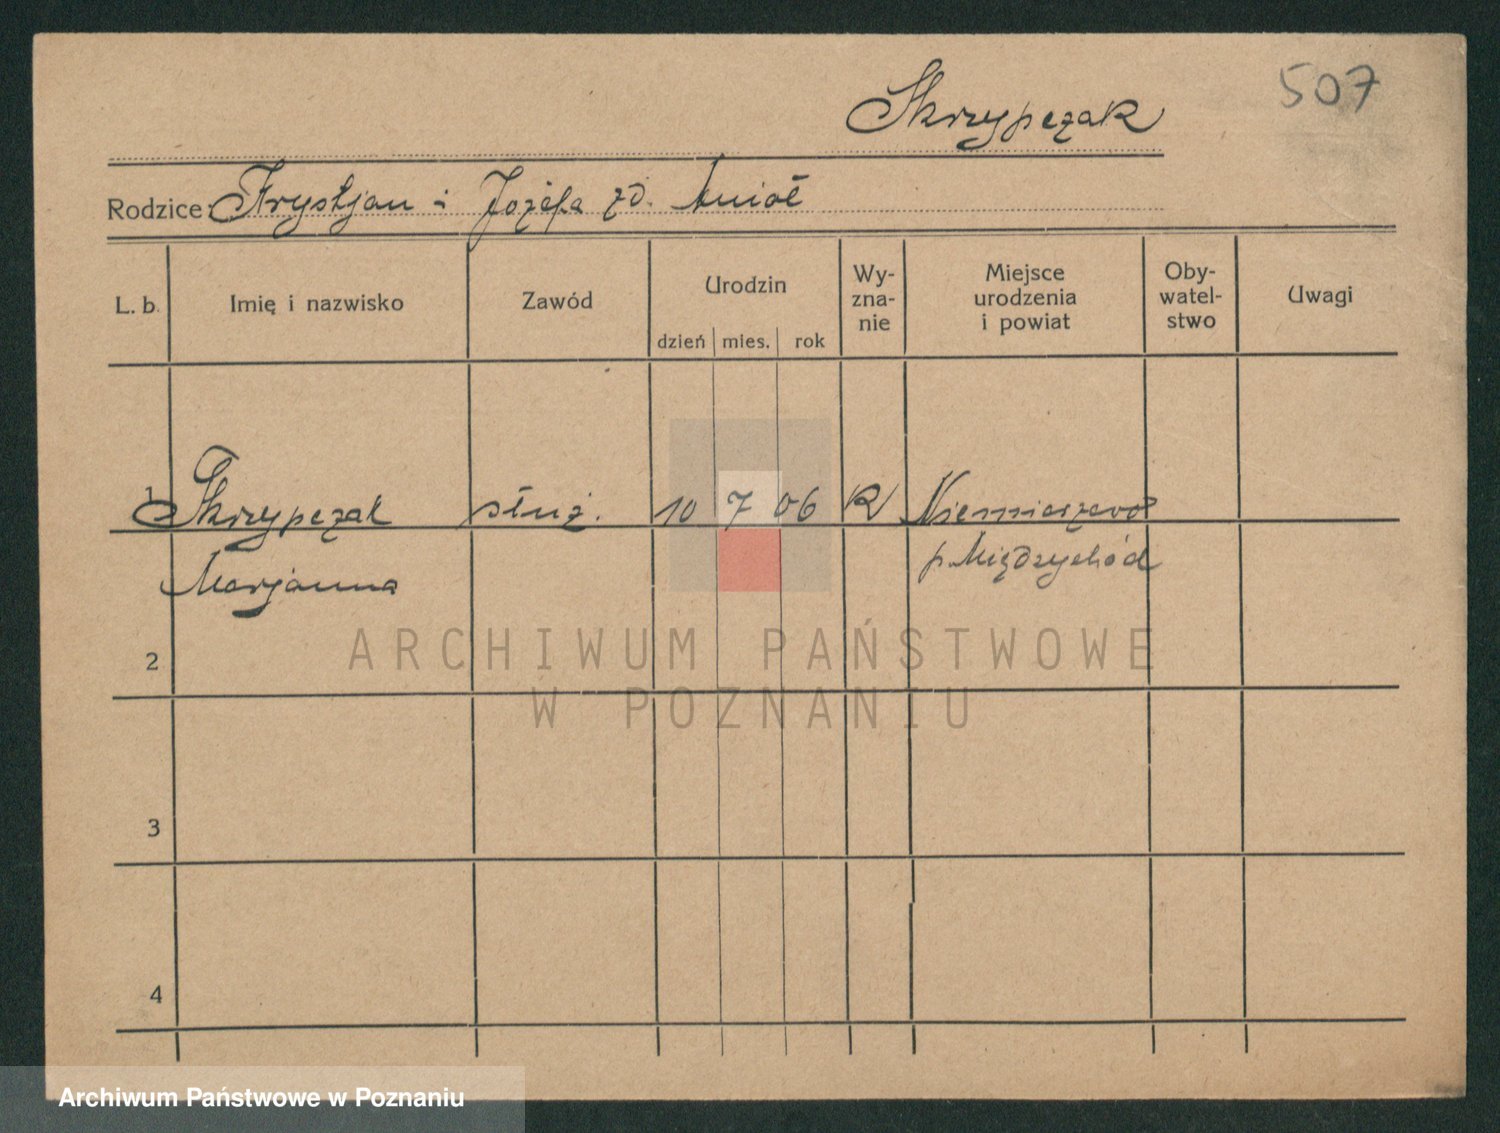 507
Skrzypczak
Rodzice: Krystjan i Józefa zd. Anioł
L. b.
Imię i nazwisko
Zawód
Urodzin
dzień mies. rok
Wy-
zna-
nie
Miejsce
urodzenia
i powiat
Oby-
watel-
stwo
Uwagi
1 Skrzypczak służ. 10 7 06 R
Marjanna p. Międzychód
2
3
4
ARCHIWUM PAŃSTWOWE
W POZNANIU
Archiwum Państwowe w Poznaniu